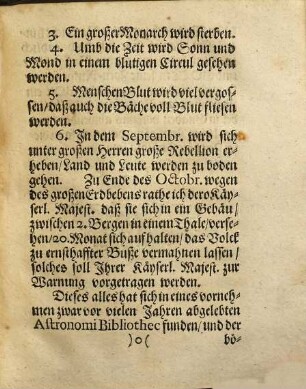 3. Ein großer Monarch wird sterben.
4. Umb die Zeit wird Sonn und
Mond in einem blutigen Circul gesehen
werden.
5. MenschenBlut wird viel vergos-
sen/daß auch die Bäche voll Blut fliesen
werden.
6. In dem Septembr. wird sich
unter großen Herren große Rebellion er-
heben/Land und Leute werden zu boden
gehen. Zu Ende des Octobr. wegen
des großen Erdbebens rathe ich dero Käy-
serl. Majest. daß sie sich in ein Gebäu/
zwischen 2. Bergen in einem Thale/verse-
hen/20. Monat sich auf halten/das Volck
zu ernsthaffter Buße vermahnen lassen/
solches soll Ihrer Käyserl. Majest. zur
Warnung vorgetragen werden.
Dieses alles hat sich in eines vorneh-
men zwar vor vielen Jahren abgelebten
Astronomi Bibliothec funden/und der
)o( bö-